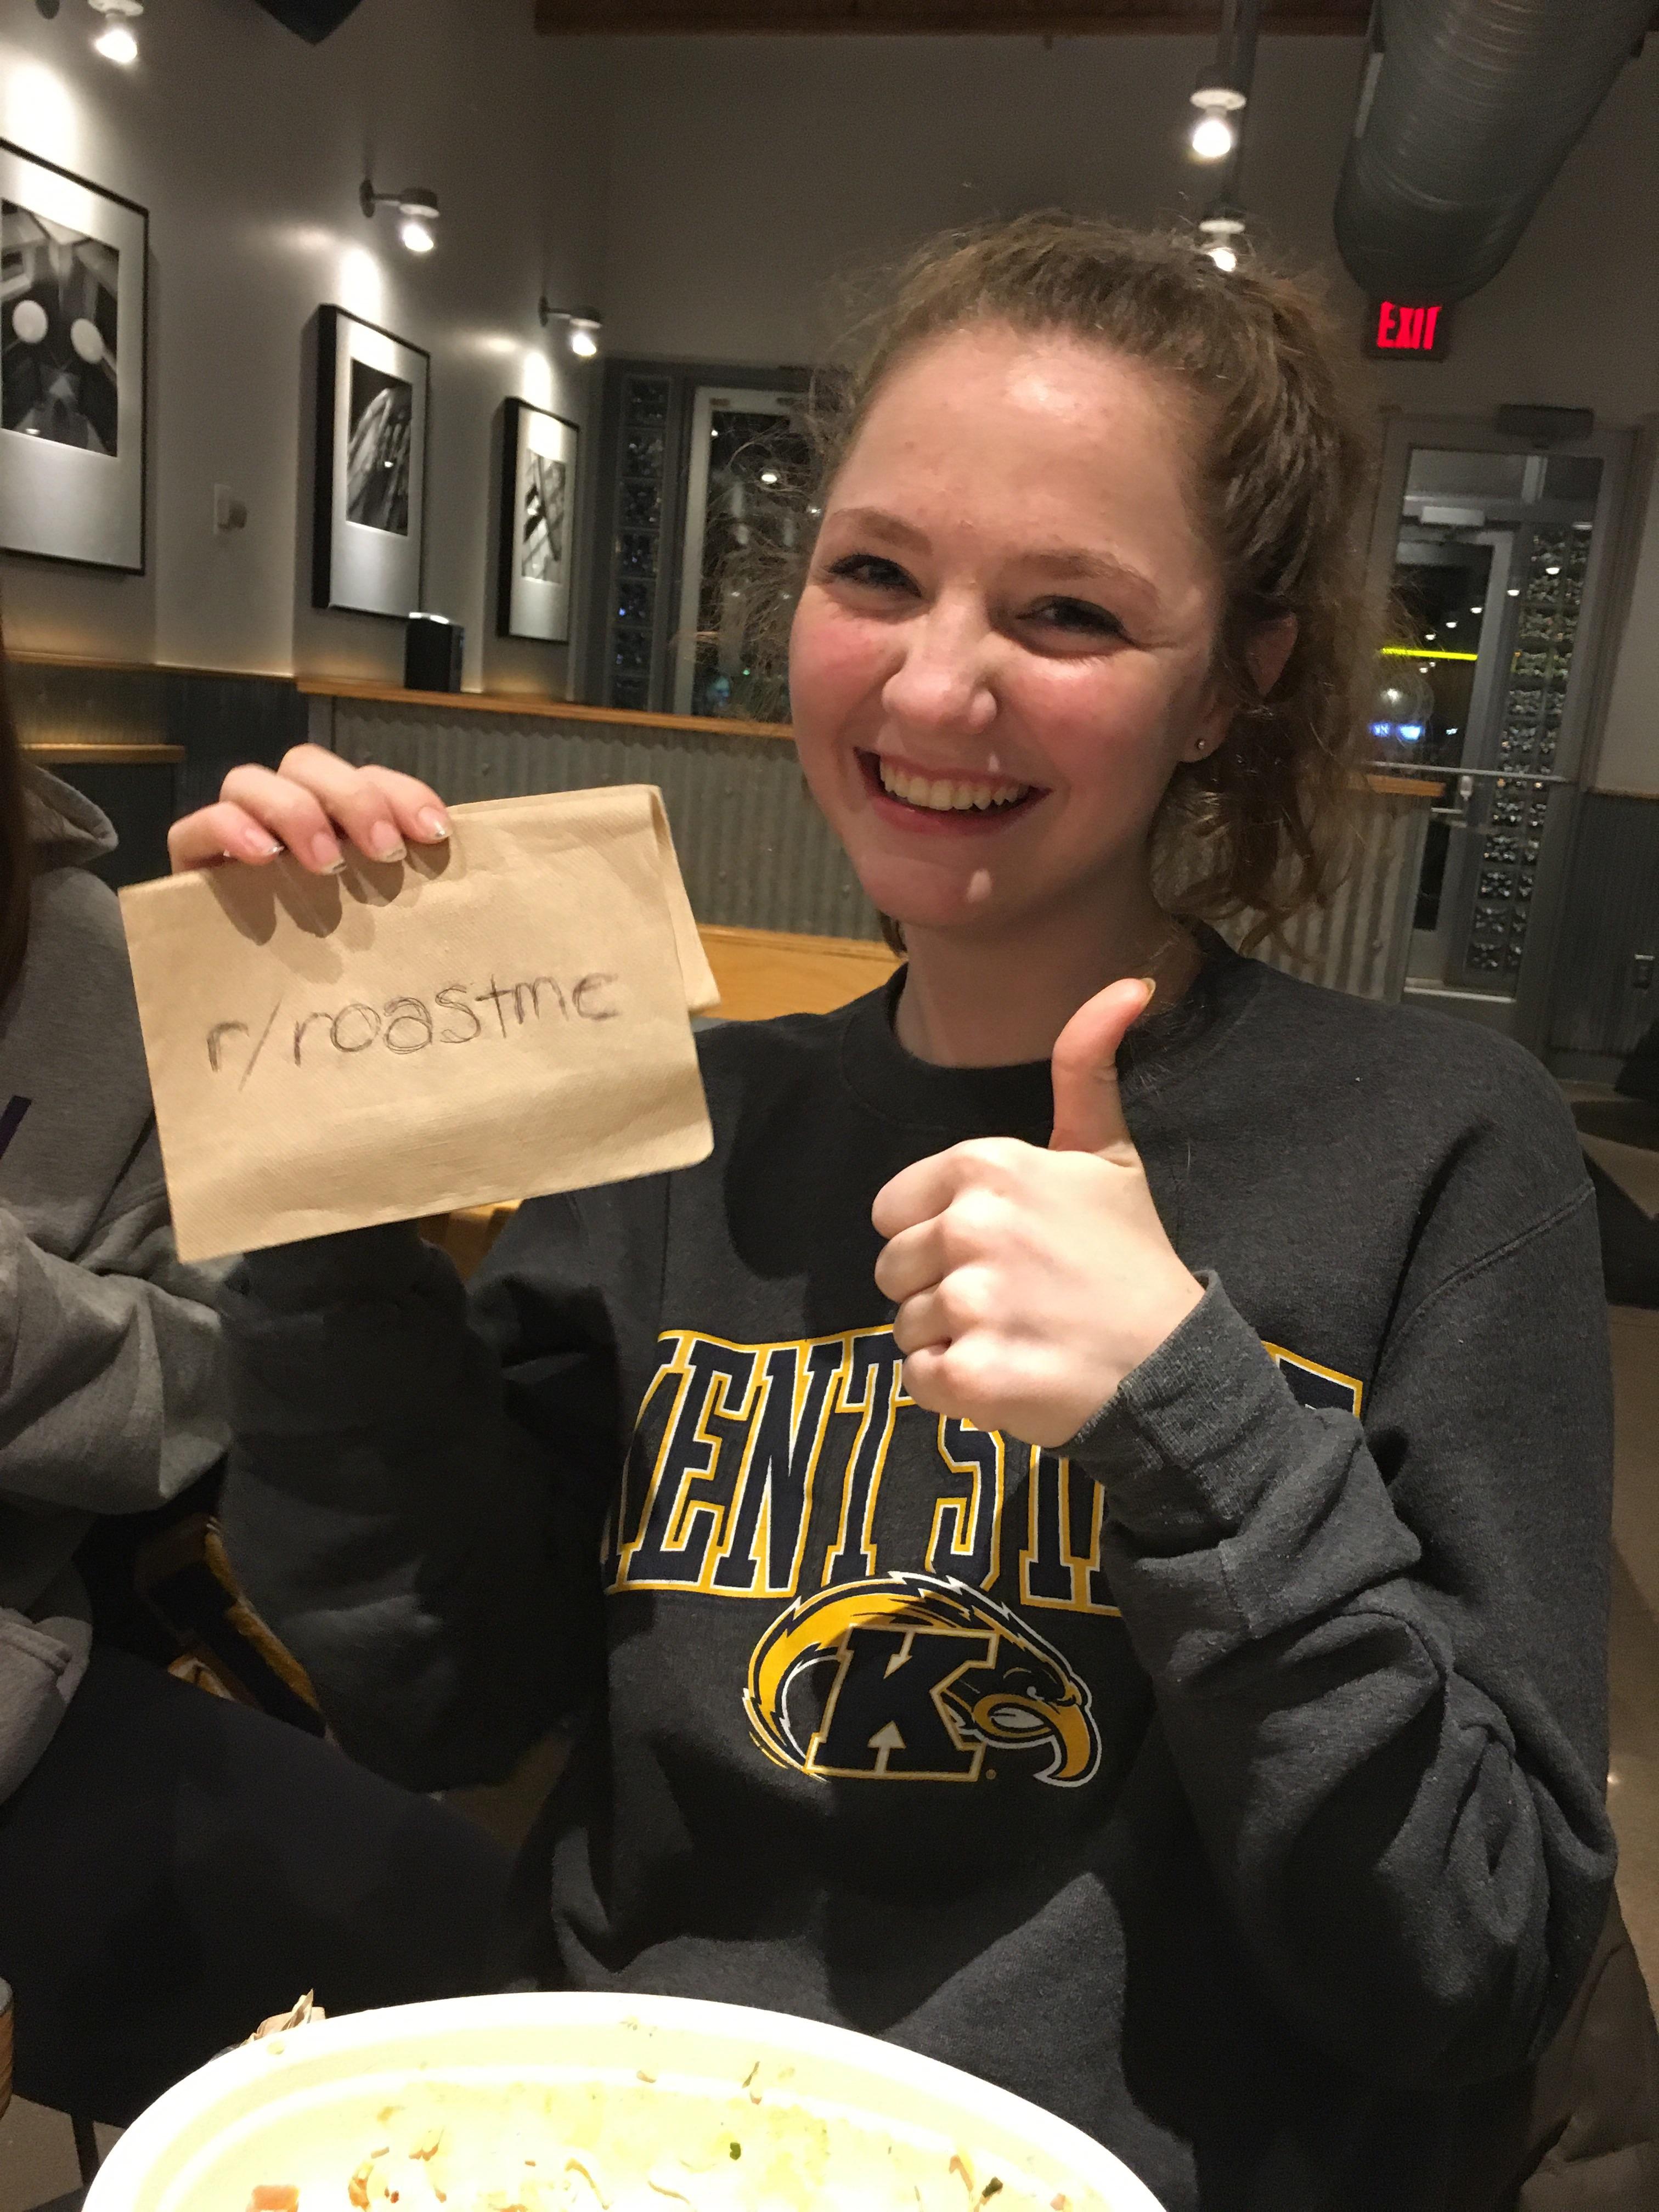 EXIT
r/roastme
KENT ST
K